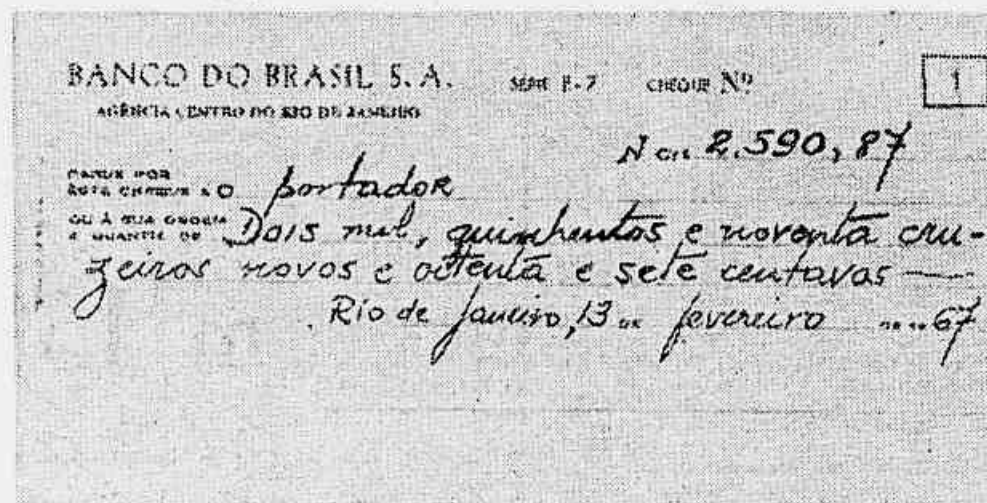 BANCO DO BRASIL S. A. SÉRIE F-7 CHEQUE Nº 1
AGÊNCIA CENTRO DO RIO DE JANEIRO
N Cr$ 2.590,87
PAGUE POR
ESTE CHEQUE A O portador
OU À SUA ORDEM
A QUANTIA DE Dois mil, quinhentos e noventa cru-
zeiros novos e oitenta e sete centavos
Rio de Janeiro, 13 DE fevereiro DE 19 67